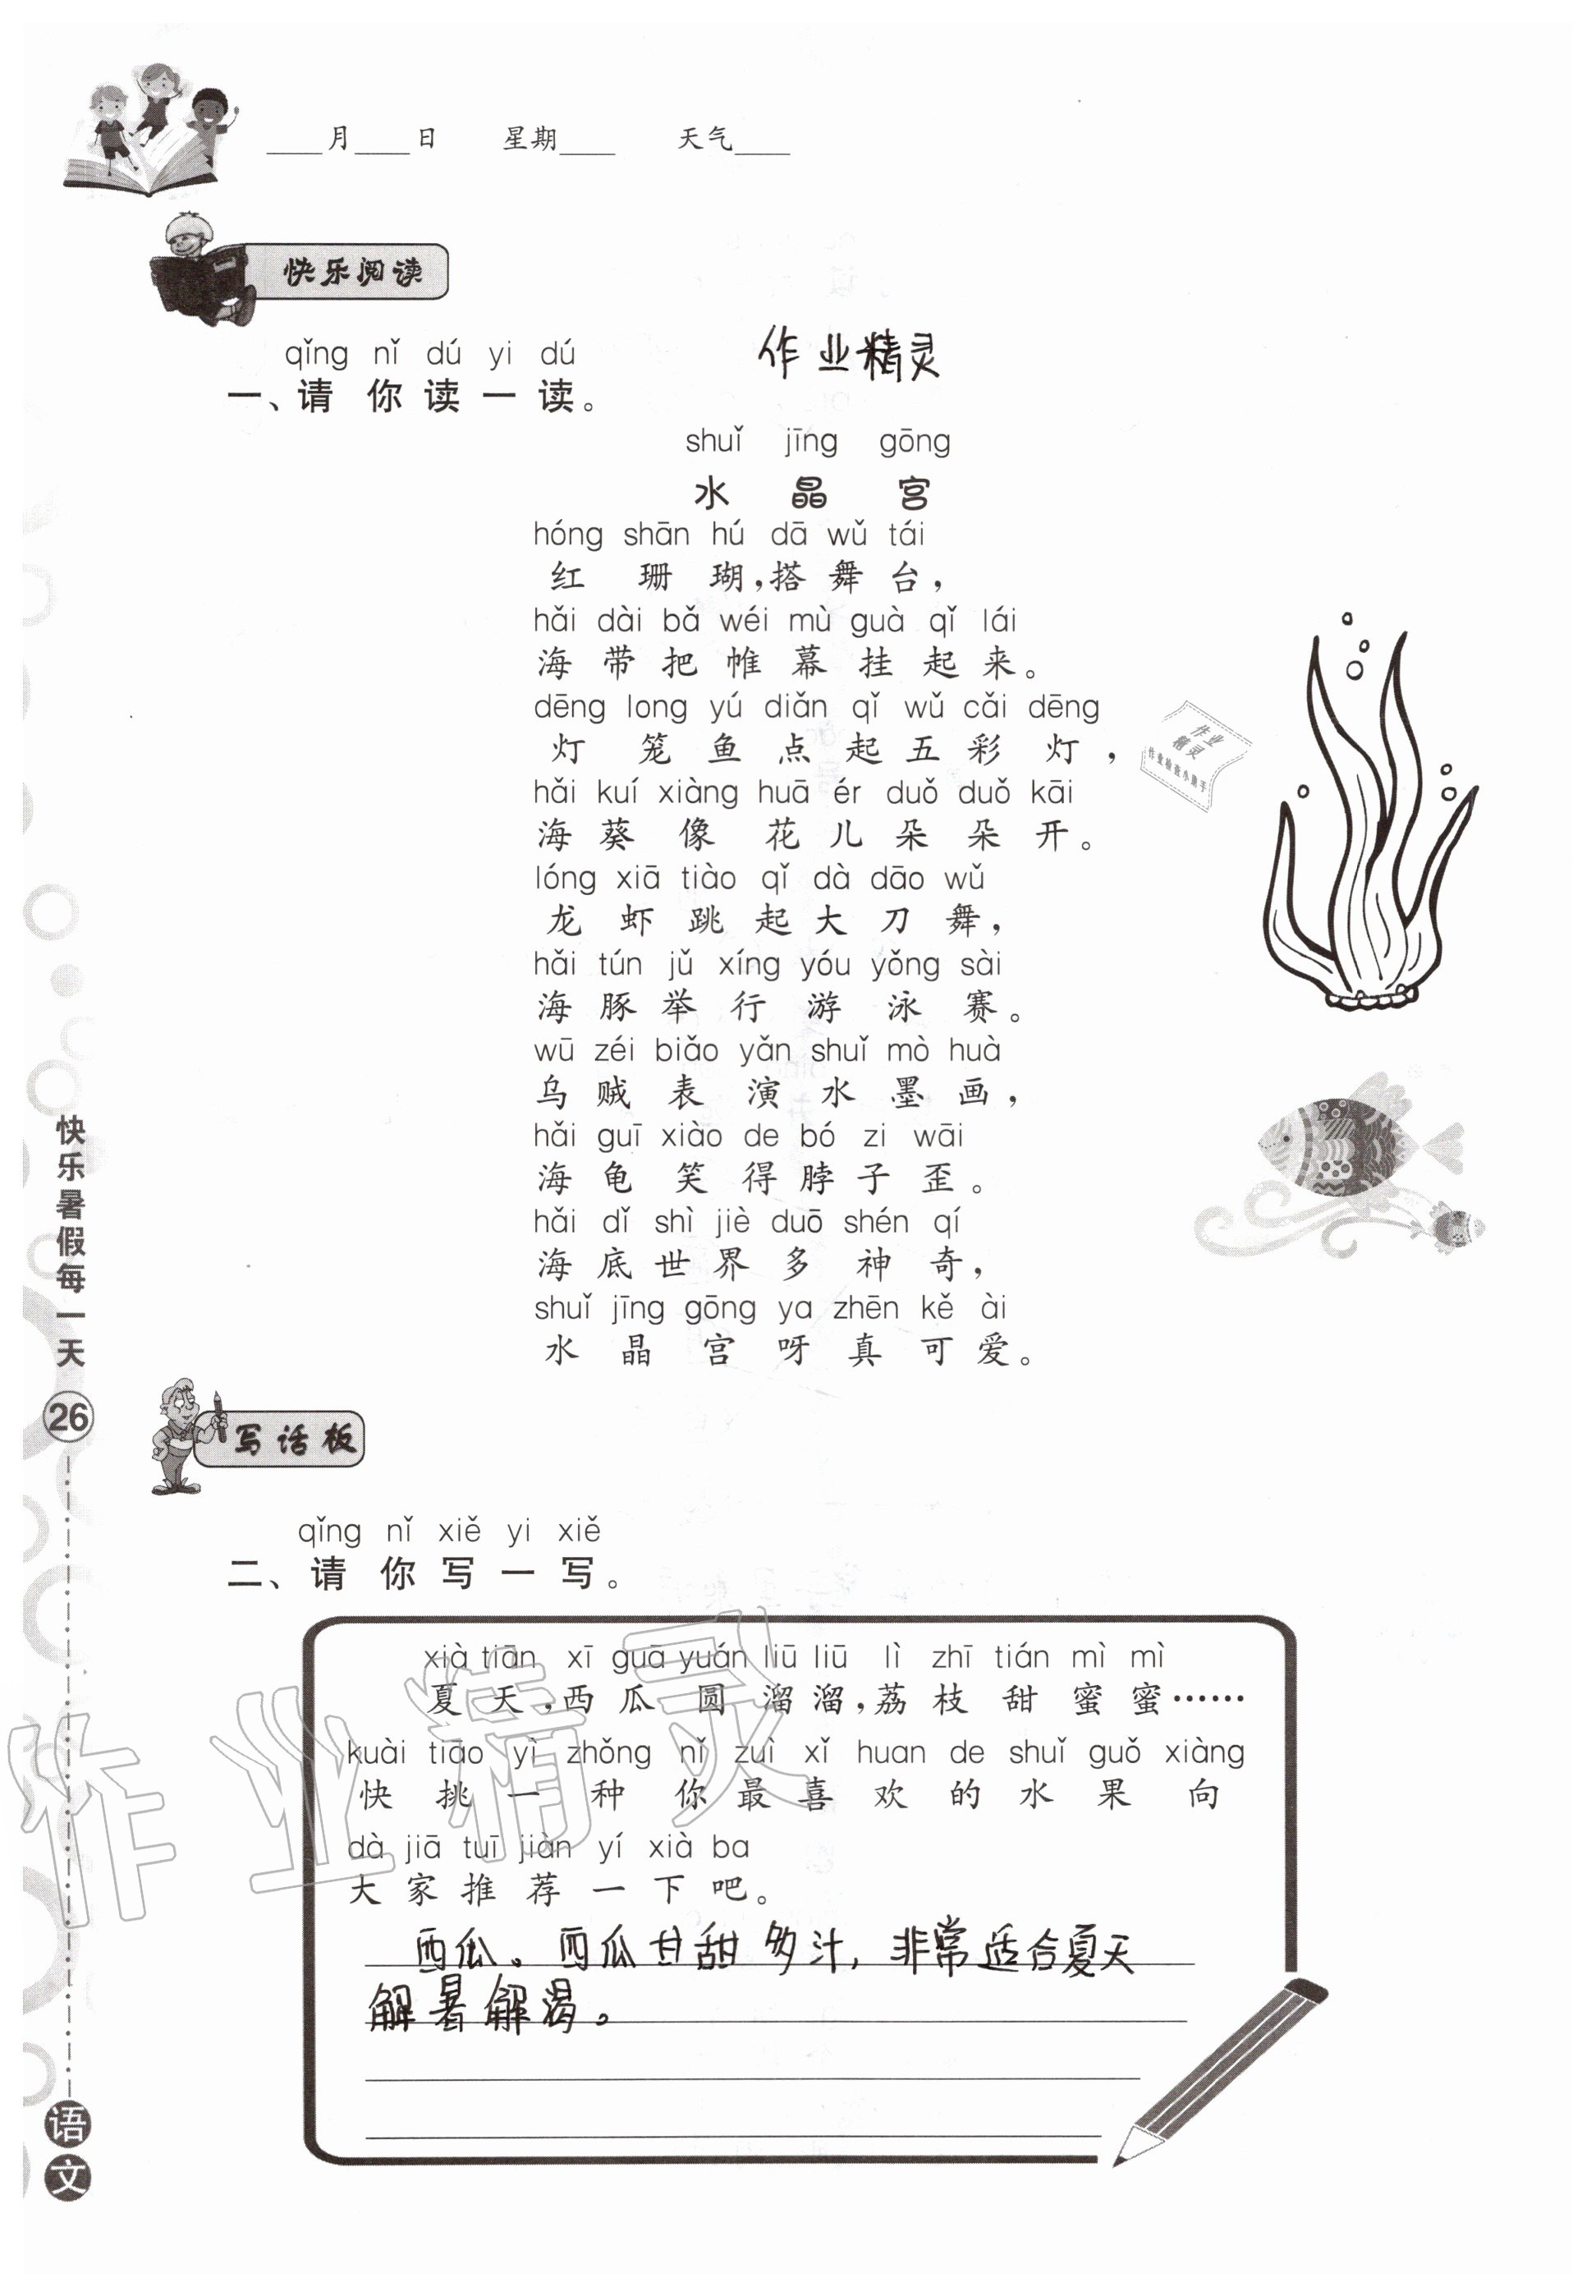 ____月____日 星期____ 天气____
快乐阅读
qǐng nǐ dú yi dú
一、请你读一读。
作业精灵
shuǐ jīng gōng
水晶宫
hóng shān hú dā wǔ tái
红珊瑚,搭舞台,
hǎi dài bǎ wéi mù guà qǐ lái
海带把帷幕挂起来。
dēng long yú diǎn qǐ wǔ cǎi dēng
灯笼鱼点起五彩灯,
hǎi kuí xiàng huā ér duǒ duǒ kāi
海葵像花儿朵朵开。
lóng xiā tiào qǐ dà dāo wǔ
龙虾跳起大刀舞,
hǎi tún jǔ xíng yóu yǒng sài
海豚举行游泳赛。
wū zéi biǎo yǎn shuǐ mò huà
乌贼表演水墨画,
hǎi guī xiào de bó zi wāi
海龟笑得脖子歪。
hǎi dǐ shì jiè duō shén qí
海底世界多神奇,
shuǐ jīng gōng ya zhēn kě ài
水晶宫呀真可爱。
作业
精灵
作业检查小助手
快乐暑假每一天
26
语文
写话板
qǐng nǐ xiě yi xiě
二、请你写一写。
xià tiān xī guā yuán liū liū lì zhī tián mì mì
夏天,西瓜圆溜溜,荔枝甜蜜蜜……
kuài tiāo yì zhǒng nǐ zuì xǐ huan de shuǐ guǒ xiàng
快挑一种你最喜欢的水果向
dà jiā tuī jiàn yí xià ba
大家推荐一下吧。
西瓜。西瓜甘甜多汁,非常适合夏天
解暑解渴。
作业精灵